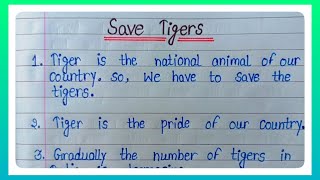 Save Tigers
1. Tiger is the national animal of our
country. so, we have to save the
tigers.
2. Tiger is the pride of our country.
3. Gradually the number of tigers in